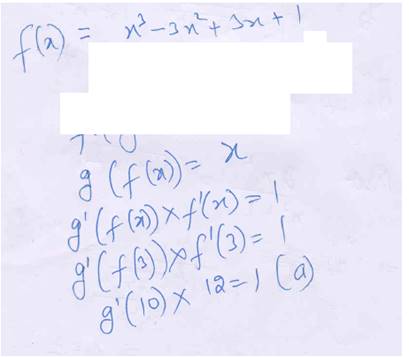 f(x) = x³ - 3x² + 3x + 1
g (f(x)) = x
g'(f(x)) × f'(x) = 1
g'(f(3)) × f'(3) = 1
g'(10) × 12 = 1 (a)